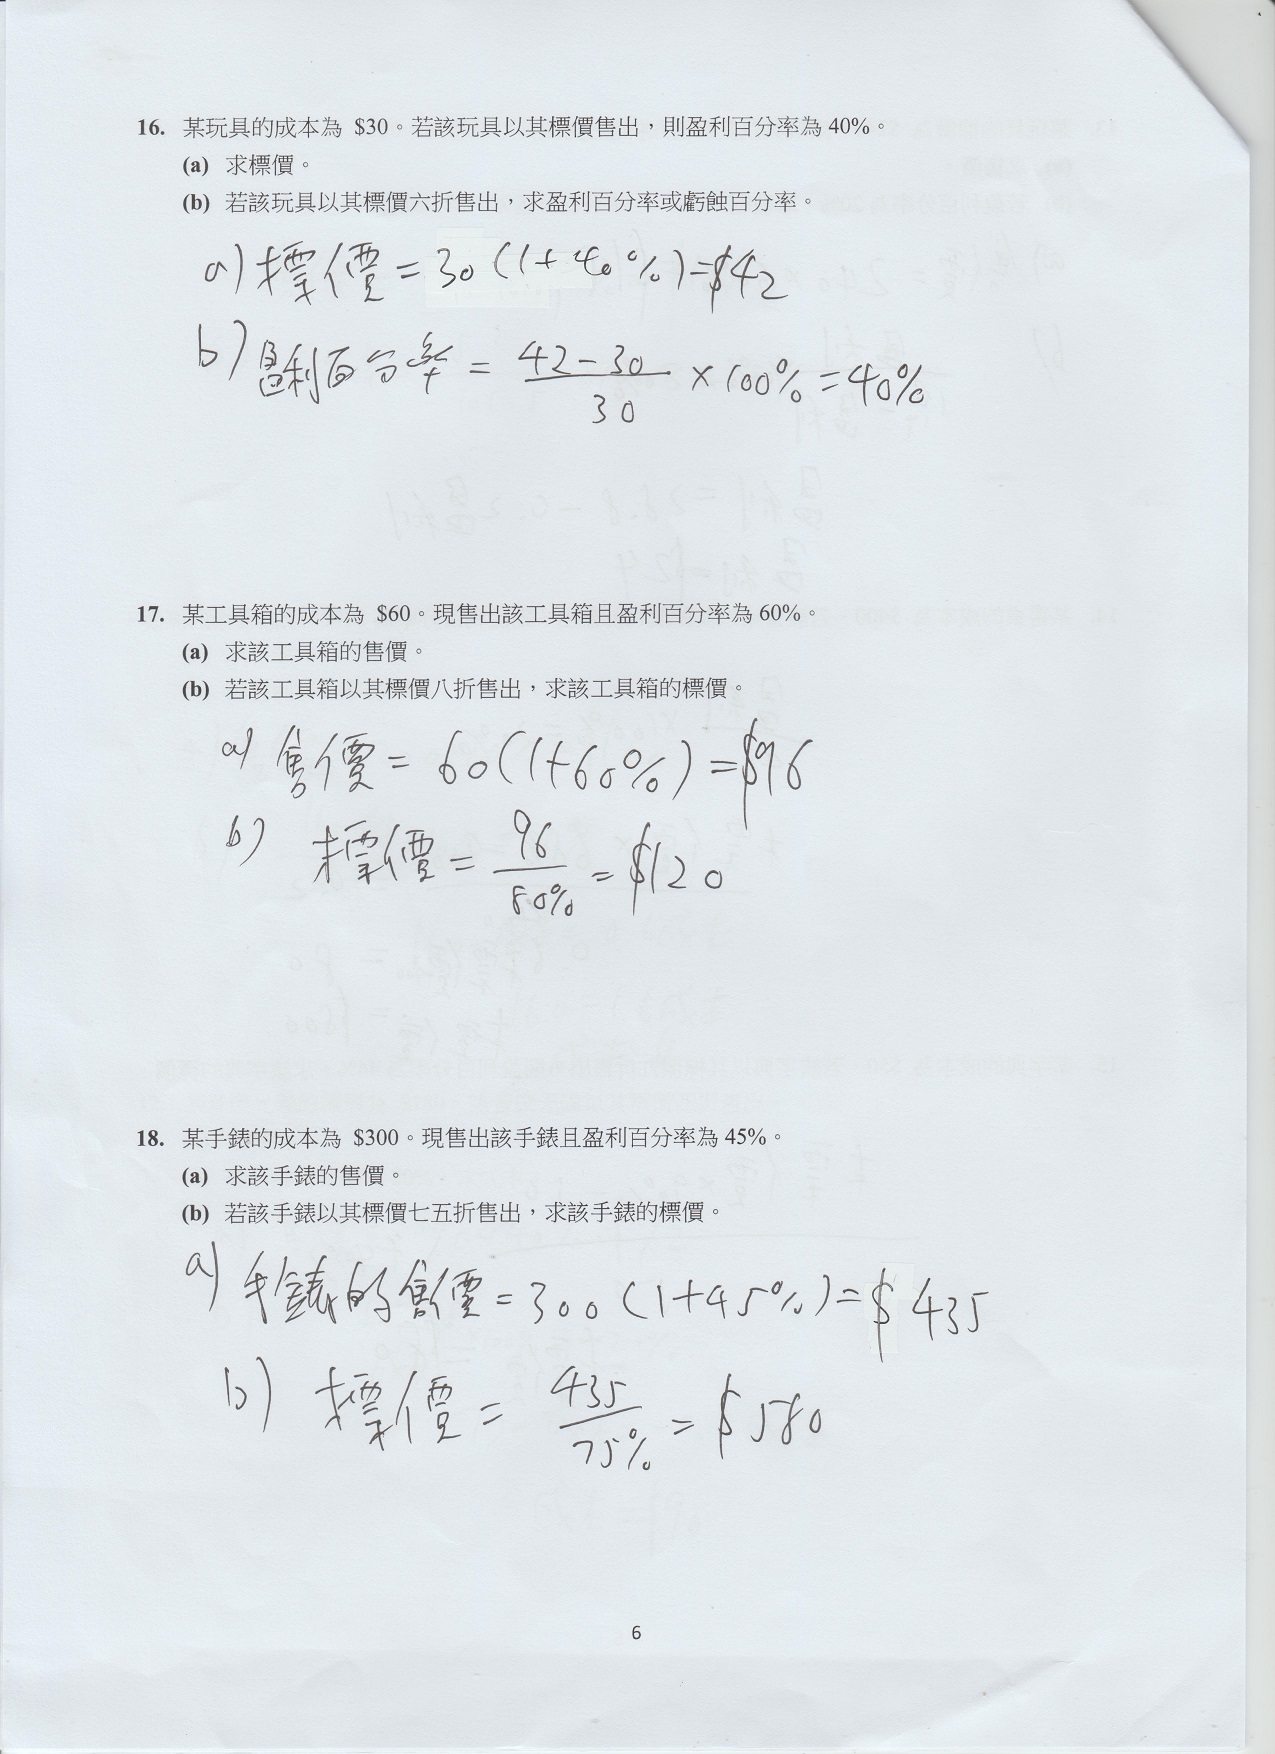 16. 某玩具的成本為 $30。若該玩具以其標價售出，則盈利百分率為 40%。
(a) 求標價。
(b) 若該玩具以其標價六折售出，求盈利百分率或虧蝕百分率。
a) 標價 = 30 (1+40%) = $42
b) 盈利百分率 = \frac{42-30}{30} × 100% = 40%
17. 某工具箱的成本為 $60。現售出該工具箱且盈利百分率為 60%。
(a) 求該工具箱的售價。
(b) 若該工具箱以其標價八折售出，求該工具箱的標價。
a) 售價 = 60(1+60%) = $96
b) 標價 = \frac{96}{80%} = $120
18. 某手錶的成本為 $300。現售出該手錶且盈利百分率為 45%。
(a) 求該手錶的售價。
(b) 若該手錶以其標價七五折售出，求該手錶的標價。
a) 手錶的售價 = 300 (1+45%) = $435
b) 標價 = \frac{435}{75%} = $580
6